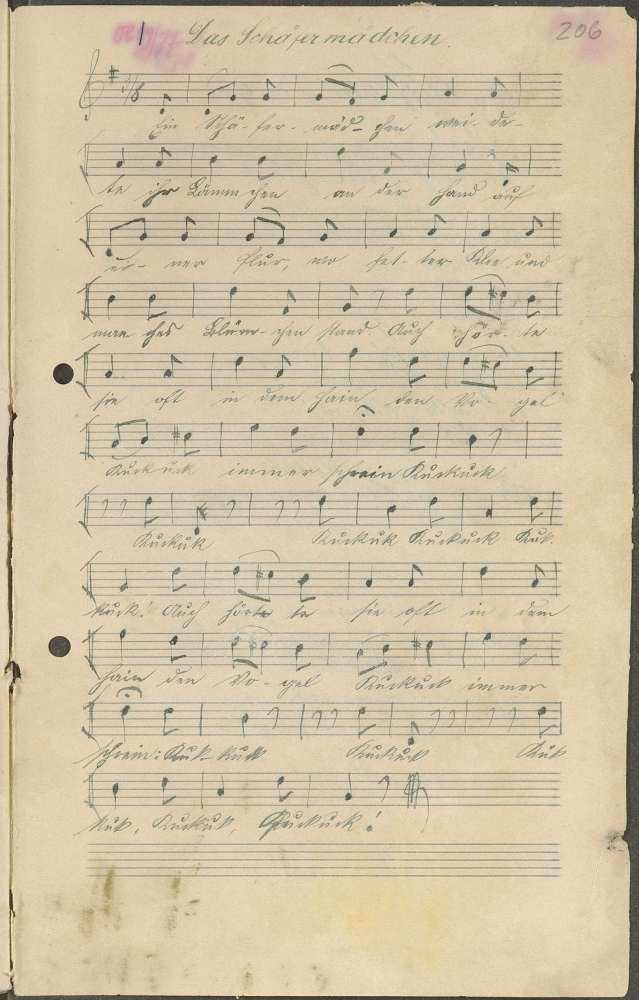 1 Das Schäfermädchen. 206
3/8
Ein Schä-fer-mäd-chen wei-de-
te ihr Lämmchen an der Hand auf
ei-ner Flur, wo fet-ter Klee und
man ches Blüm-chen stand. Auch hör-te
sie oft in dem Hain den Vo-gel
Kuckuck immer schrein Kuckuck
Kuckuk Kuckuk Kuckuck Kuk-
kuck! Auch hörte te sie oft in dem
Hain den Vo-gel Kuckuck immer
schrein: Kuk-kuk Kuckuck Kuk
kuk, Kuckuk, Kuckuck!